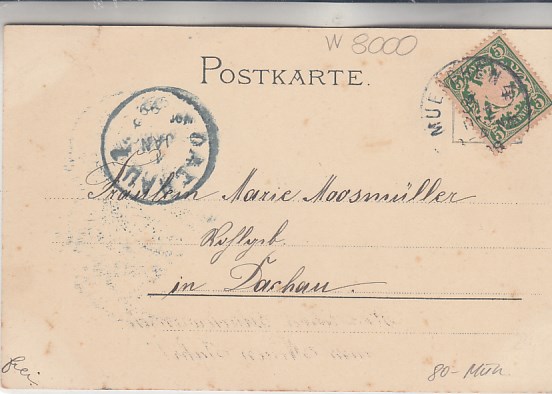 W 8000
POSTKARTE.
MUE
5 5
DACHAU
1
JAN
99
Fräulein Marie Moosmüller
Wohlgeb.
in Dachau.
frei.
80-